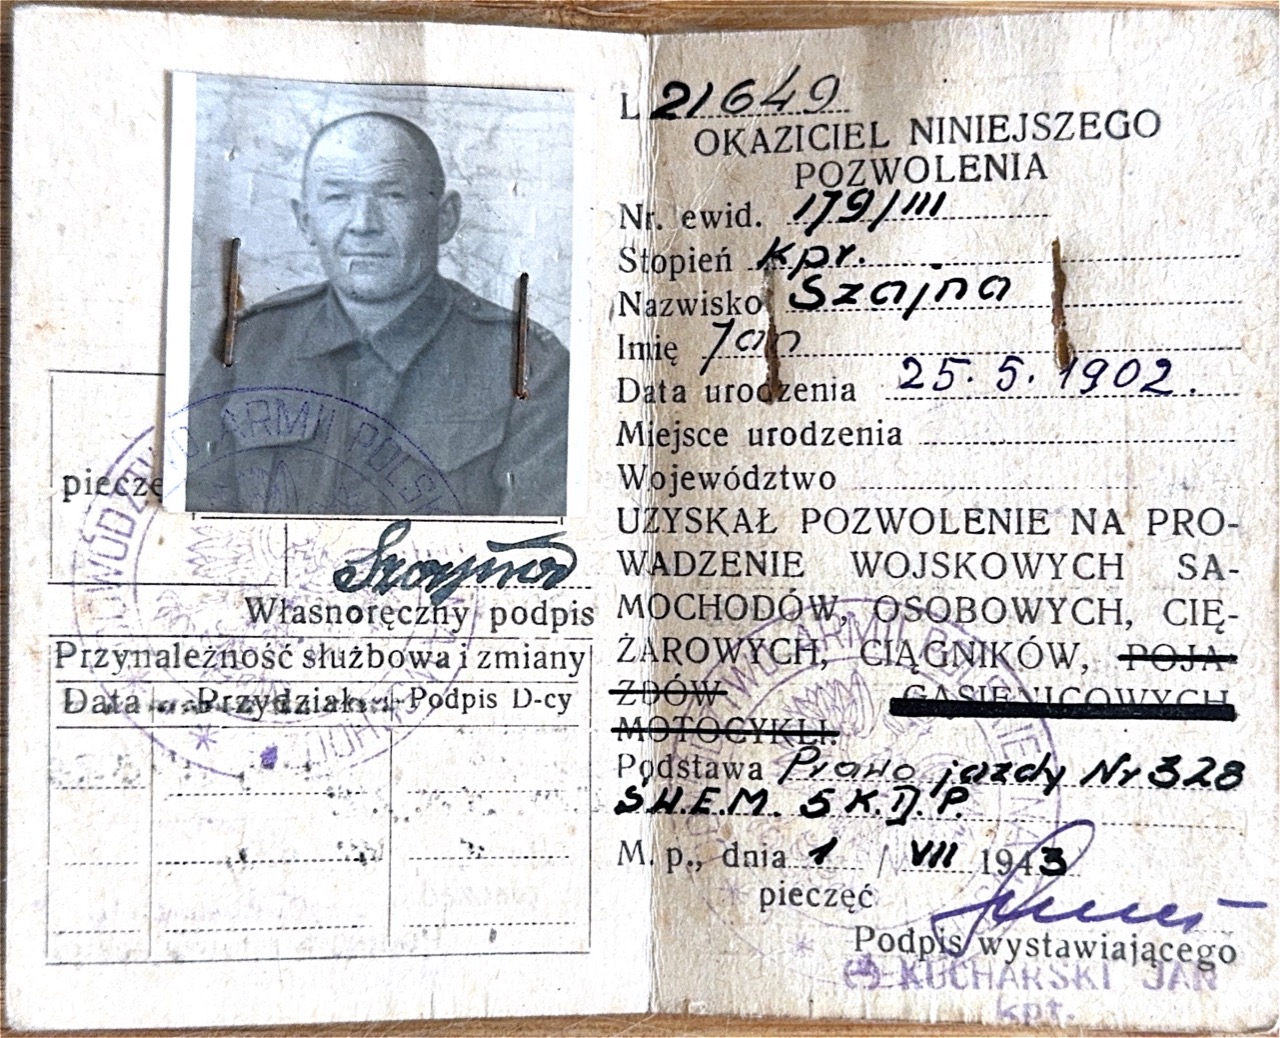 pieczę
Szajna
Własnoręczny podpis
Przynależność służbowa i zmiany
Data Przydział Podpis D-cy
DOWÓDZTWO ARMII POLSK
L 21649
OKAZICIEL NINIEJSZEGO
POZWOLENIA
Nr. ewid. 179/III
Stopień kpr.
Nazwisko Szajna
Imię Jan
Data urodzenia 25. 5. 1902.
Miejsce urodzenia
Województwo
UZYSKAŁ POZWOLENIE NA PRO-
WADZENIE WOJSKOWYCH SA-
MOCHODÓW, OSOBOWYCH, CIĘ-
ŻAROWYCH, CIĄGNIKÓW, POJA-
ZDÓW GĄSIENICOWYCH
MOTOCYKLI.
Podstawa Prawo jazdy Nr 328
S.H.E.M. 5 K.D.P.
M. p., dnia 1 / VII 1943
pieczęć
Podpis wystawiającego
KUCHARSKI JAN
kpt.